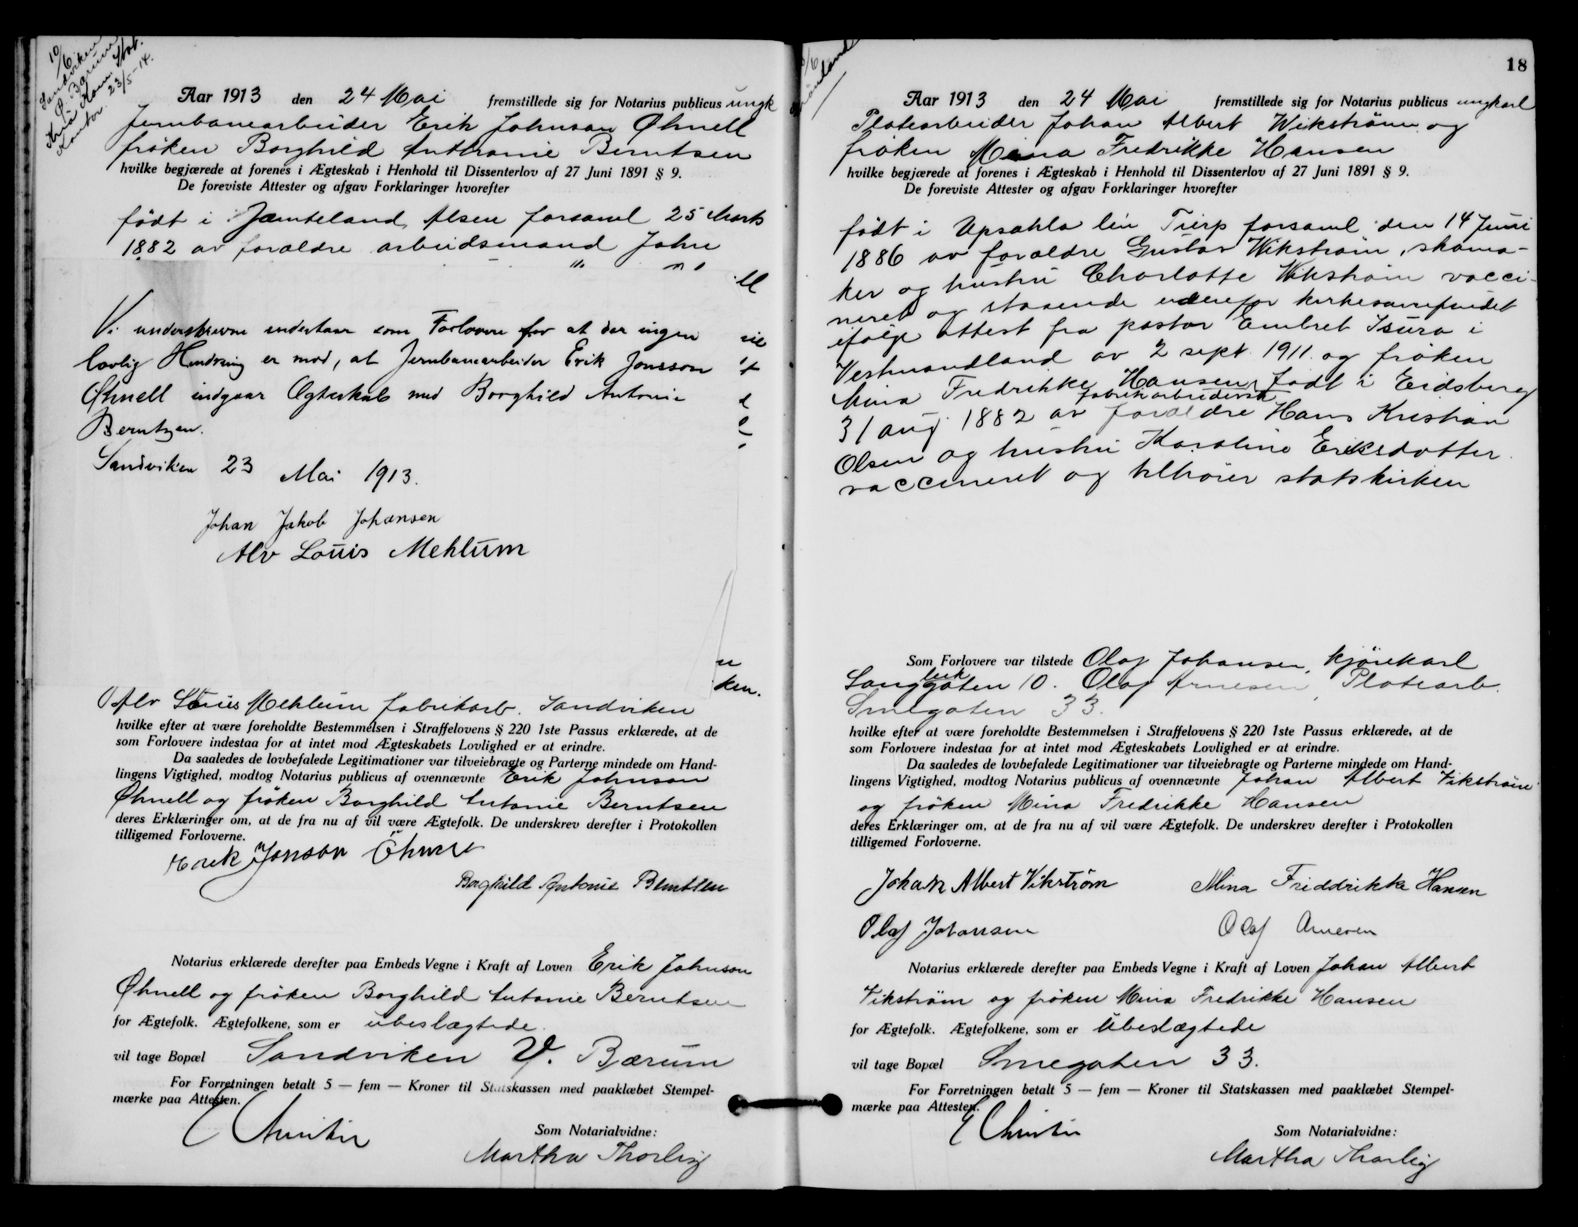 10/6
Sandviken
Bærum
Kontor 23/5-14.
Aar 1913 den 24 Mai fremstillede sig for Notarius publicus ungk
Jernbanearbeider Erik Johnson Øhnell
frøken Borghild Anthonie Berntsen
hvilke begjærede at forenes i Ægteskab i Henhold til Dissenterlov af 27 Juni 1891 § 9.
De foreviste Attester og afgav Forklaringer hvorefter
født i Jæmteland, Alsen forsaml 25 Marts
1882 av forældre arbeidsmand John
Vi underskrevne indestaar som Forlovere for at der ingen
lovlig Hindring er mod, at Jernbanearbeider Erik Jonsson
Øhnell indgaar Ægteskab med Borghild Antonie
Berntzen.
Sandviken 23 Mai 1913.
Johan Jakob Johansen
Alv Louis Mehlum
ken.
Alv Louis Mehlum fabrikarb. Sandviken
hvilke efter at være foreholdte Bestemmelsen i Straffelovens § 220 1ste Passus erklærede, at de
som Forlovere indestaa for at intet mod Ægteskabets Lovlighed er at erindre.
Da saaledes de lovbefalede Legitimationer var tilveiebragte og Parterne mindede om Hand-
lingens Vigtighed, modtog Notarius publicus af ovennævnte Erik Johnson
Øhnell og frøken Borghild Antonie Berntsen
deres Erklæringer om, at de fra nu af vil være Ægtefolk. De underskrev derefter i Protokollen
tilligemed Forloverne.
Erik Jonson Öhnell
Borghild Antonie Berntsen
Notarius erklærede derefter paa Embeds Vegne i Kraft af Loven Erik Johnson
Øhnell og frøken Borghild Antonie Berntsen
for Ægtefolk. Ægtefolkene, som er ubeslægtede.
vil tage Bopæl Sandviken V. Bærum
For Forretningen betalt 5 — fem — Kroner til Statskassen med paaklæbet Stempel-
mærke paa Attesten.
Som Notarialvidne:
Martha Thorlig
18
Aar 1913 den 24 Mai fremstillede sig for Notarius publicus ungkarl
Platearbeider Johan Albert Wikstrøm og
frøken Mina Fredrikke Hansen
hvilke begjærede at forenes i Ægteskab i Henhold til Dissenterlov af 27 Juni 1891 § 9.
De foreviste Attester og afgav Forklaringer hvorefter
født i Upsahla len Tierp forsaml den 14 Juni
1886 av forældre Gustav Wikstrøm, skoma-
ker og hustru Charlotte Wikstrøm vacci-
neret og staaende udenfor kirkesamfundet
ifølge attest fra pastor Embret Isura i
Vestmandland av 2 sept. 1911. og frøken
Mina Fredrikke Hansen, født i Eidsberg
fabrikarbeiderske
31 aug. 1882 av forældre Hans Kristian
Olsen og hustru Karoline Eriksdotter.
vaccineret og tilhører statskirken
Som Forlovere var tilstede Olaf Johansen, kjørekarl
Langgaten 10. Olaf Arnesen, Platearb.
Smegaten 33.
hvilke efter at være foreholdte Bestemmelsen i Straffelovens § 220 1ste Passus erklærede, at de
som Forlovere indestaa for at intet mod Ægteskabets Lovlighed er at erindre.
Da saaledes de lovbefalede Legitimationer var tilveiebragte og Parterne mindede om Hand-
lingens Vigtighed, modtog Notarius publicus af ovennævnte Johan Albert Vikstrøm
og frøken Mina Fredrikke Hansen
deres Erklæringer om, at de fra nu af vil være Ægtefolk. De underskrev derefter i Protokollen
tilligemed Forloverne.
Johan Albert Vikström Mina Friddrikke Hansen
Olaf Johansen Olaf Arnesen
Notarius erklærede derefter paa Embeds Vegne i Kraft af Loven Johan Albert
Vikstrøm og frøken Mina Fredrikke Hansen
for Ægtefolk. Ægtefolkene, som er Ubeslægtede
vil tage Bopæl Smegaten 33.
For Forretningen betalt 5 — fem — Kroner til Statskassen med paaklæbet Stempel-
mærke paa Attesten.
Som Notarialvidne:
Martha Thorlig